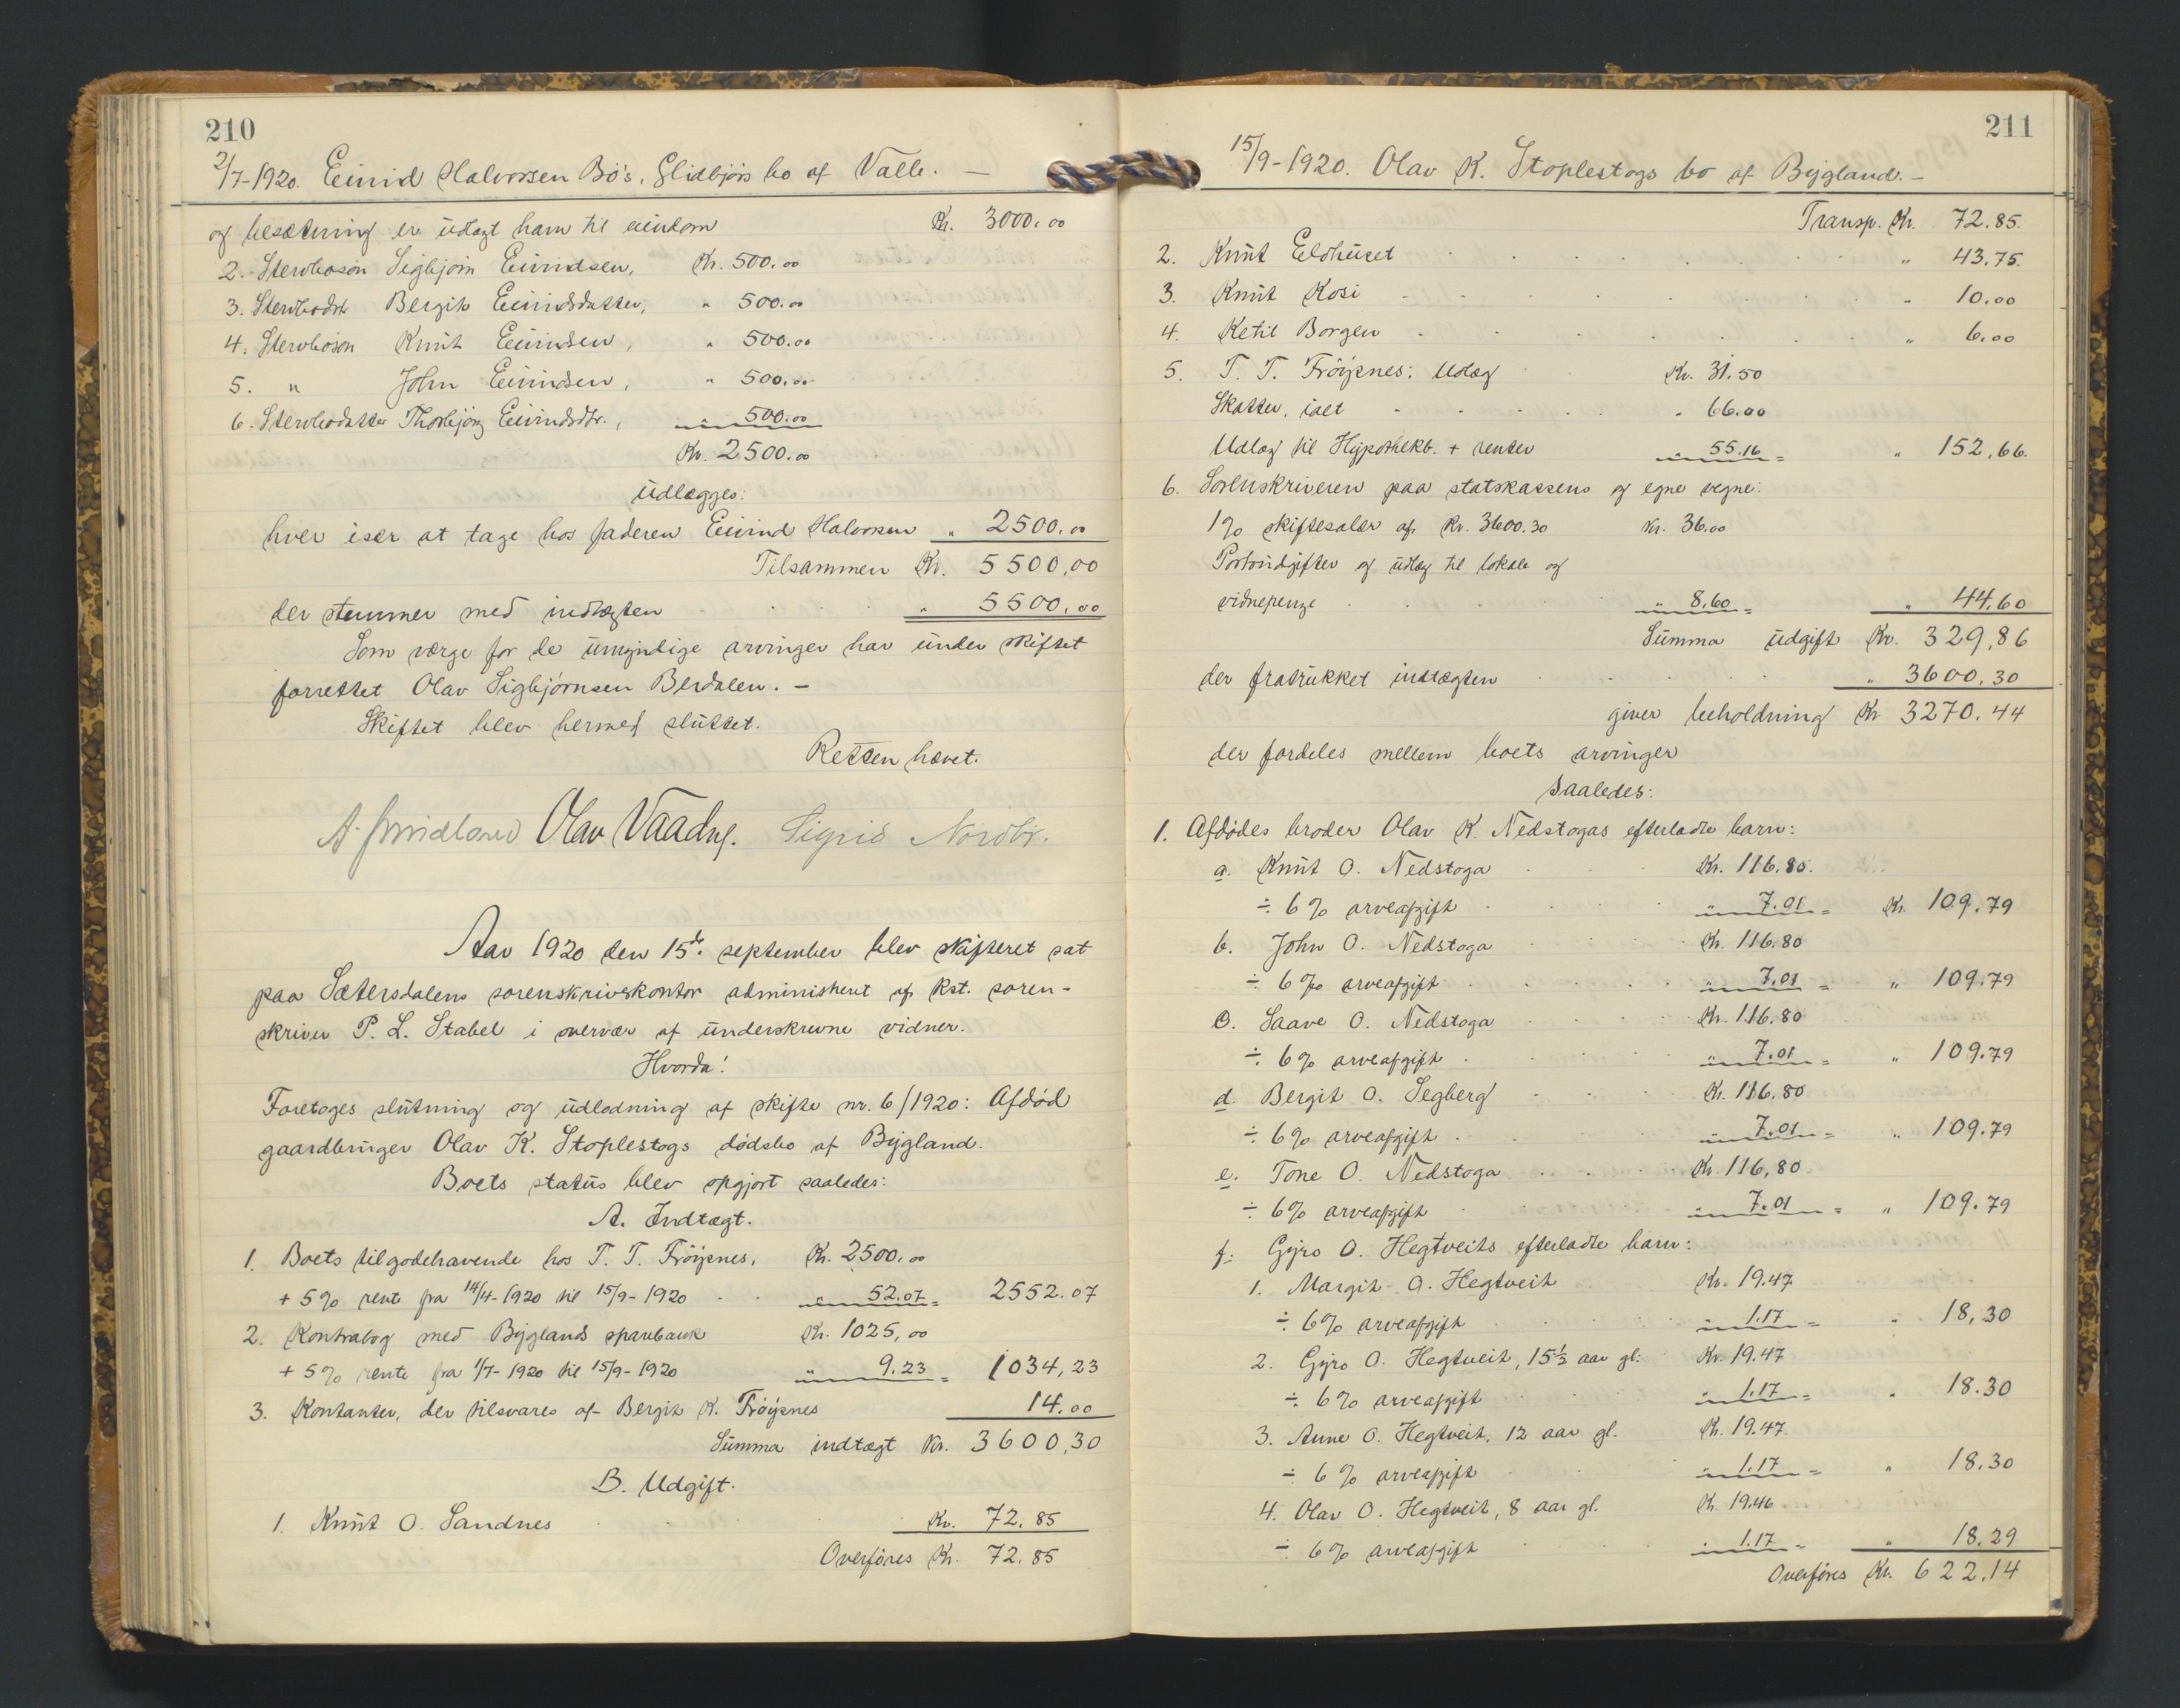 210
2/7-1920. Eivind Halvorsen Bö's, Glidbjörs bo af Valle. —
og besætning er udlagt ham til eiendom Kr. 3000.00
2. Stervboson Sigbjörn Eivindsen, Kr. 500.00
3. Stervbodtr Bergit Eivindsdatter, " 500.00
4. Stervboson Knut Eivindsen, " 500.00
5. " John Eivindsen, " 500.00
6. Stervbodatter Thorbjörg Eivindsdtr., " 500.00
Kr. 2500.00
udlægges:
hver især at tage hos faderen Eivind Halvorsen " 2500.00
Tilsammen Kr. 5500,00
der stemmer med indtægten " 5500.00
Som værge for de umyndige arvinger har under skiftet
forrettet Olav Sigbjörnsen Berdalen. —
Skiftet blev hermed sluttet.
Retten hævet.
Olav Vaadny. Sigrid Nordbö.
Aar 1920 den 15de september blev skifteret sat
paa Sætersdalens sorenskriverkontor administreret af kst. soren-
skriver P. L. Stabel i overvær af underskrevne vidner.
Hvorda!
Foretoges slutning og udlodning af skifte nr. 6/1920: Afdöd
gaardbruger Olav K. Stoplestogs dödsbo af Bygland.
Boets status blev opgjort saaledes:
A. Indtægt.
1. Boets tilgodehavende hos T. T. Fröysnes, Kr. 2500,00
+ 5% rent fra 14/4-1920 til 15/9-1920 " 52.07 = 2552.07
2. Kontrabog med Byglands sparebank Kr. 1025,00
+ 5% rente fra 1/7-1920 til 15/9-1920 " 9.23 = 1034,23
3. Kontanter, der tilsvares af Bergit K. Fröysnes 14.00
Summa indtægt Kr. 3600,30
B. Udgift.
1. Knut O. Sandnes Kr. 72.85
Overföres Kr. 72.85
211
15/9-1920. Olav K. Stoplestogs bo af Bygland. —
Transp. Kr. 72.85.
2. Knut Eldhuset " 43.75.
3. Knut Kosi " 10.00
4. Ketil Borgen " 6.00
5. T. T. Fröysnes: Udlæg Kr. 31.50
Skatter, ialt " 66.00
Udlæg til Hypothekb. + renter " 55.16 = " 152,66.
6. Sorenskriveren paa statskassens og egne vegne:
1% skiftesalær af Kr. 3600.30 Kr. 36.00
Portoudgifter og udlæg til lokale og
vidnepenge " 8.60 = " 44.60
Summa udgift Kr. 329,86
der fratrukket indtægten " 3600.30
giver beholdning Kr. 3270.44
der fordeles mellem boets arvinger
saaledes:
1. Afdödes broder Olav K. Nedstogas efterladte barn:
a. Knut O. Nedstoga Kr. 116.80.
÷ 6% arveafgift " 7.01 = Kr. 109.79
b. John O. Nedstoga Kr. 116.80
÷ 6% arveafgift " 7.01 = " 109.79
c. Saave O. Nedstoga Kr. 116.80
÷ 6% arveafgift " 7.01 = " 109.79
d. Bergit O. Segberg Kr. 116.80
÷ 6% arveafgift " 7.01 = " 109.79
e. Tone O. Nedstoga Kr. 116,80
÷ 6% arveafgift " 7.01 = " 109.79
f. Gyro O. Hegtveits efterladte barn:
1. Margit O. Hegtveit Kr. 19.47
÷ 6% arveafgift " 1.17 = " 18,30
2. Gyro O. Hegtveit, 15½ aar gl. Kr. 19.47
÷ 6% arveafgift " 1.17 = " 18.30
3. Anne O. Hegtveit, 12 aar gl. Kr. 19.47.
÷ 6% arveafgift " 1.17 = " 18.30
4. Olav O. Hegtveit, 8 aar gl. Kr. 19.46
÷ 6% arveafgift " 1.17 = " 18.29
Overföres Kr. 622,14